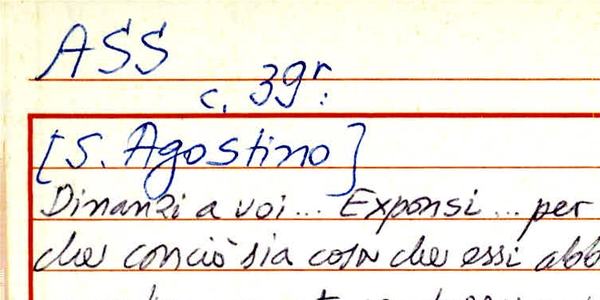 ASS
c. 39r:
[S. Agostino]
Dinanzi a voi... Exponsi... per
che conciò sia cosa che essi abb